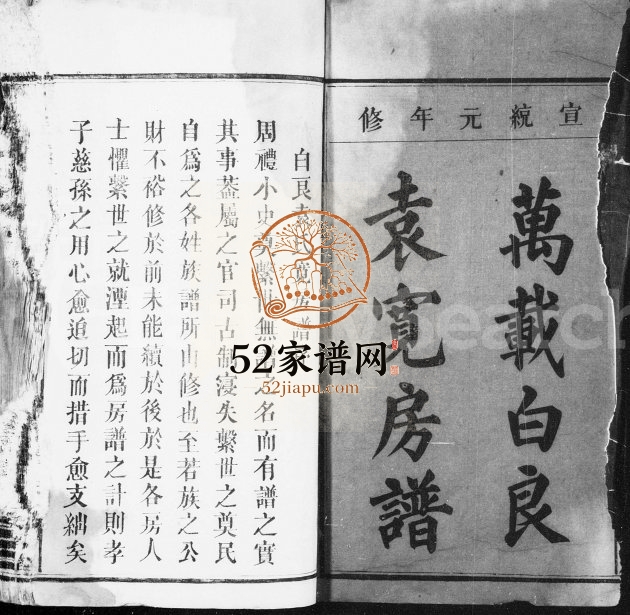 宣統元年修
萬載白良
袁寬房譜
白良袁
譜
周禮小史奠繫世無之名而有譜之實
其事蓋屬之官司古制寖失繫世之奠民
自為之各姓族譜所由修也至若族之公
財不裕修於前未能續於後於是各房人
士懼繫世之就湮起而為房譜之計則孝
子慈孫之用心愈迫切而措手愈支絀矣
52家谱网
52jiapu.com